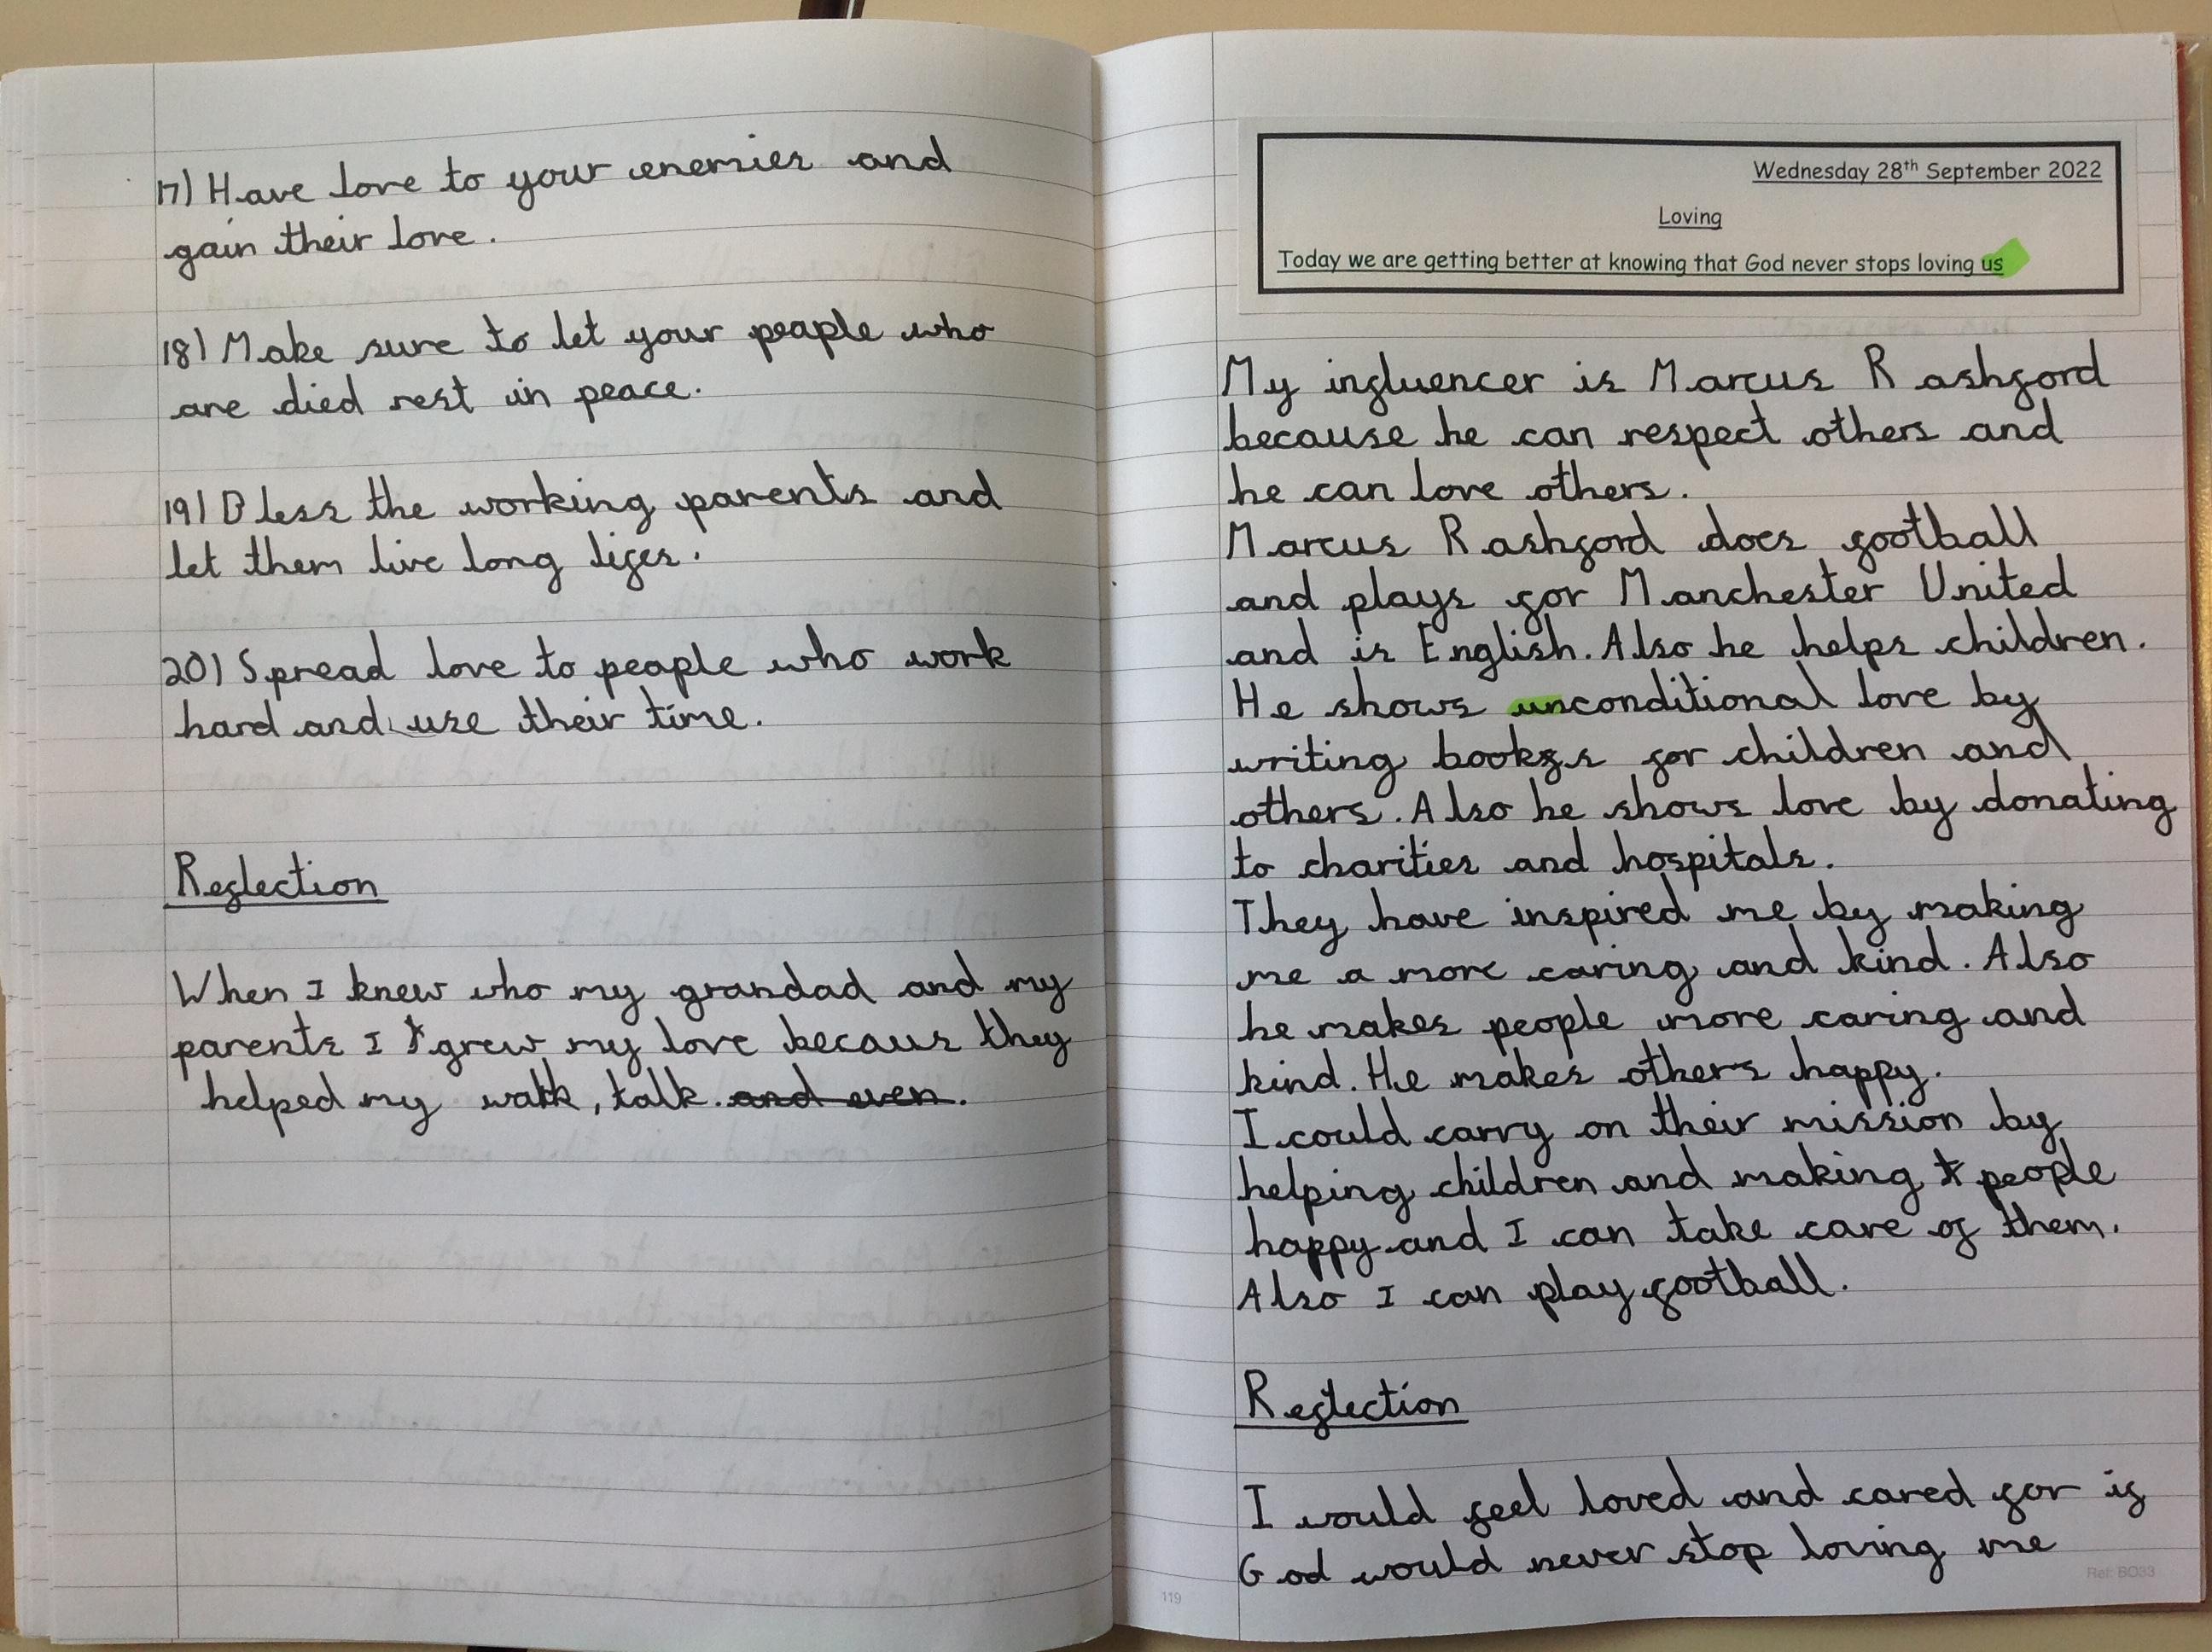 17) Have love to your enemies and
gain their love.
18) Make sure to let your peaple who
are died rest in peace.
19) Bless the working parents and
let them live long lifes.
20) Spread love to peaple who work
hard and use their time.
Reflection
When I knew who my grandad and my
parents I grew my love becaus they
helped my walk, talk. and even.
119
Wednesday 28th September 2022
Loving
Today we are getting better at knowing that God never stops loving us
My influencer is Marcus Rashford
because he can respect others and
he can love others.
Marcus Rashford does football
and plays for Manchester United
and is English. Also he helps children.
He shows unconditional love by
writing books for children and
others. Also he shows love by donating
to charities and hospitals.
They have inspired me by making
me a more caring and kind. Also
he makes people more caring and
kind. He makes others happy.
I could carry on their mission by
helping children and making people
happy and I can take care of them.
Also I can play football.
Reflection
I would feel loved and cared for if
God would never stop loving me
Ref: BO33